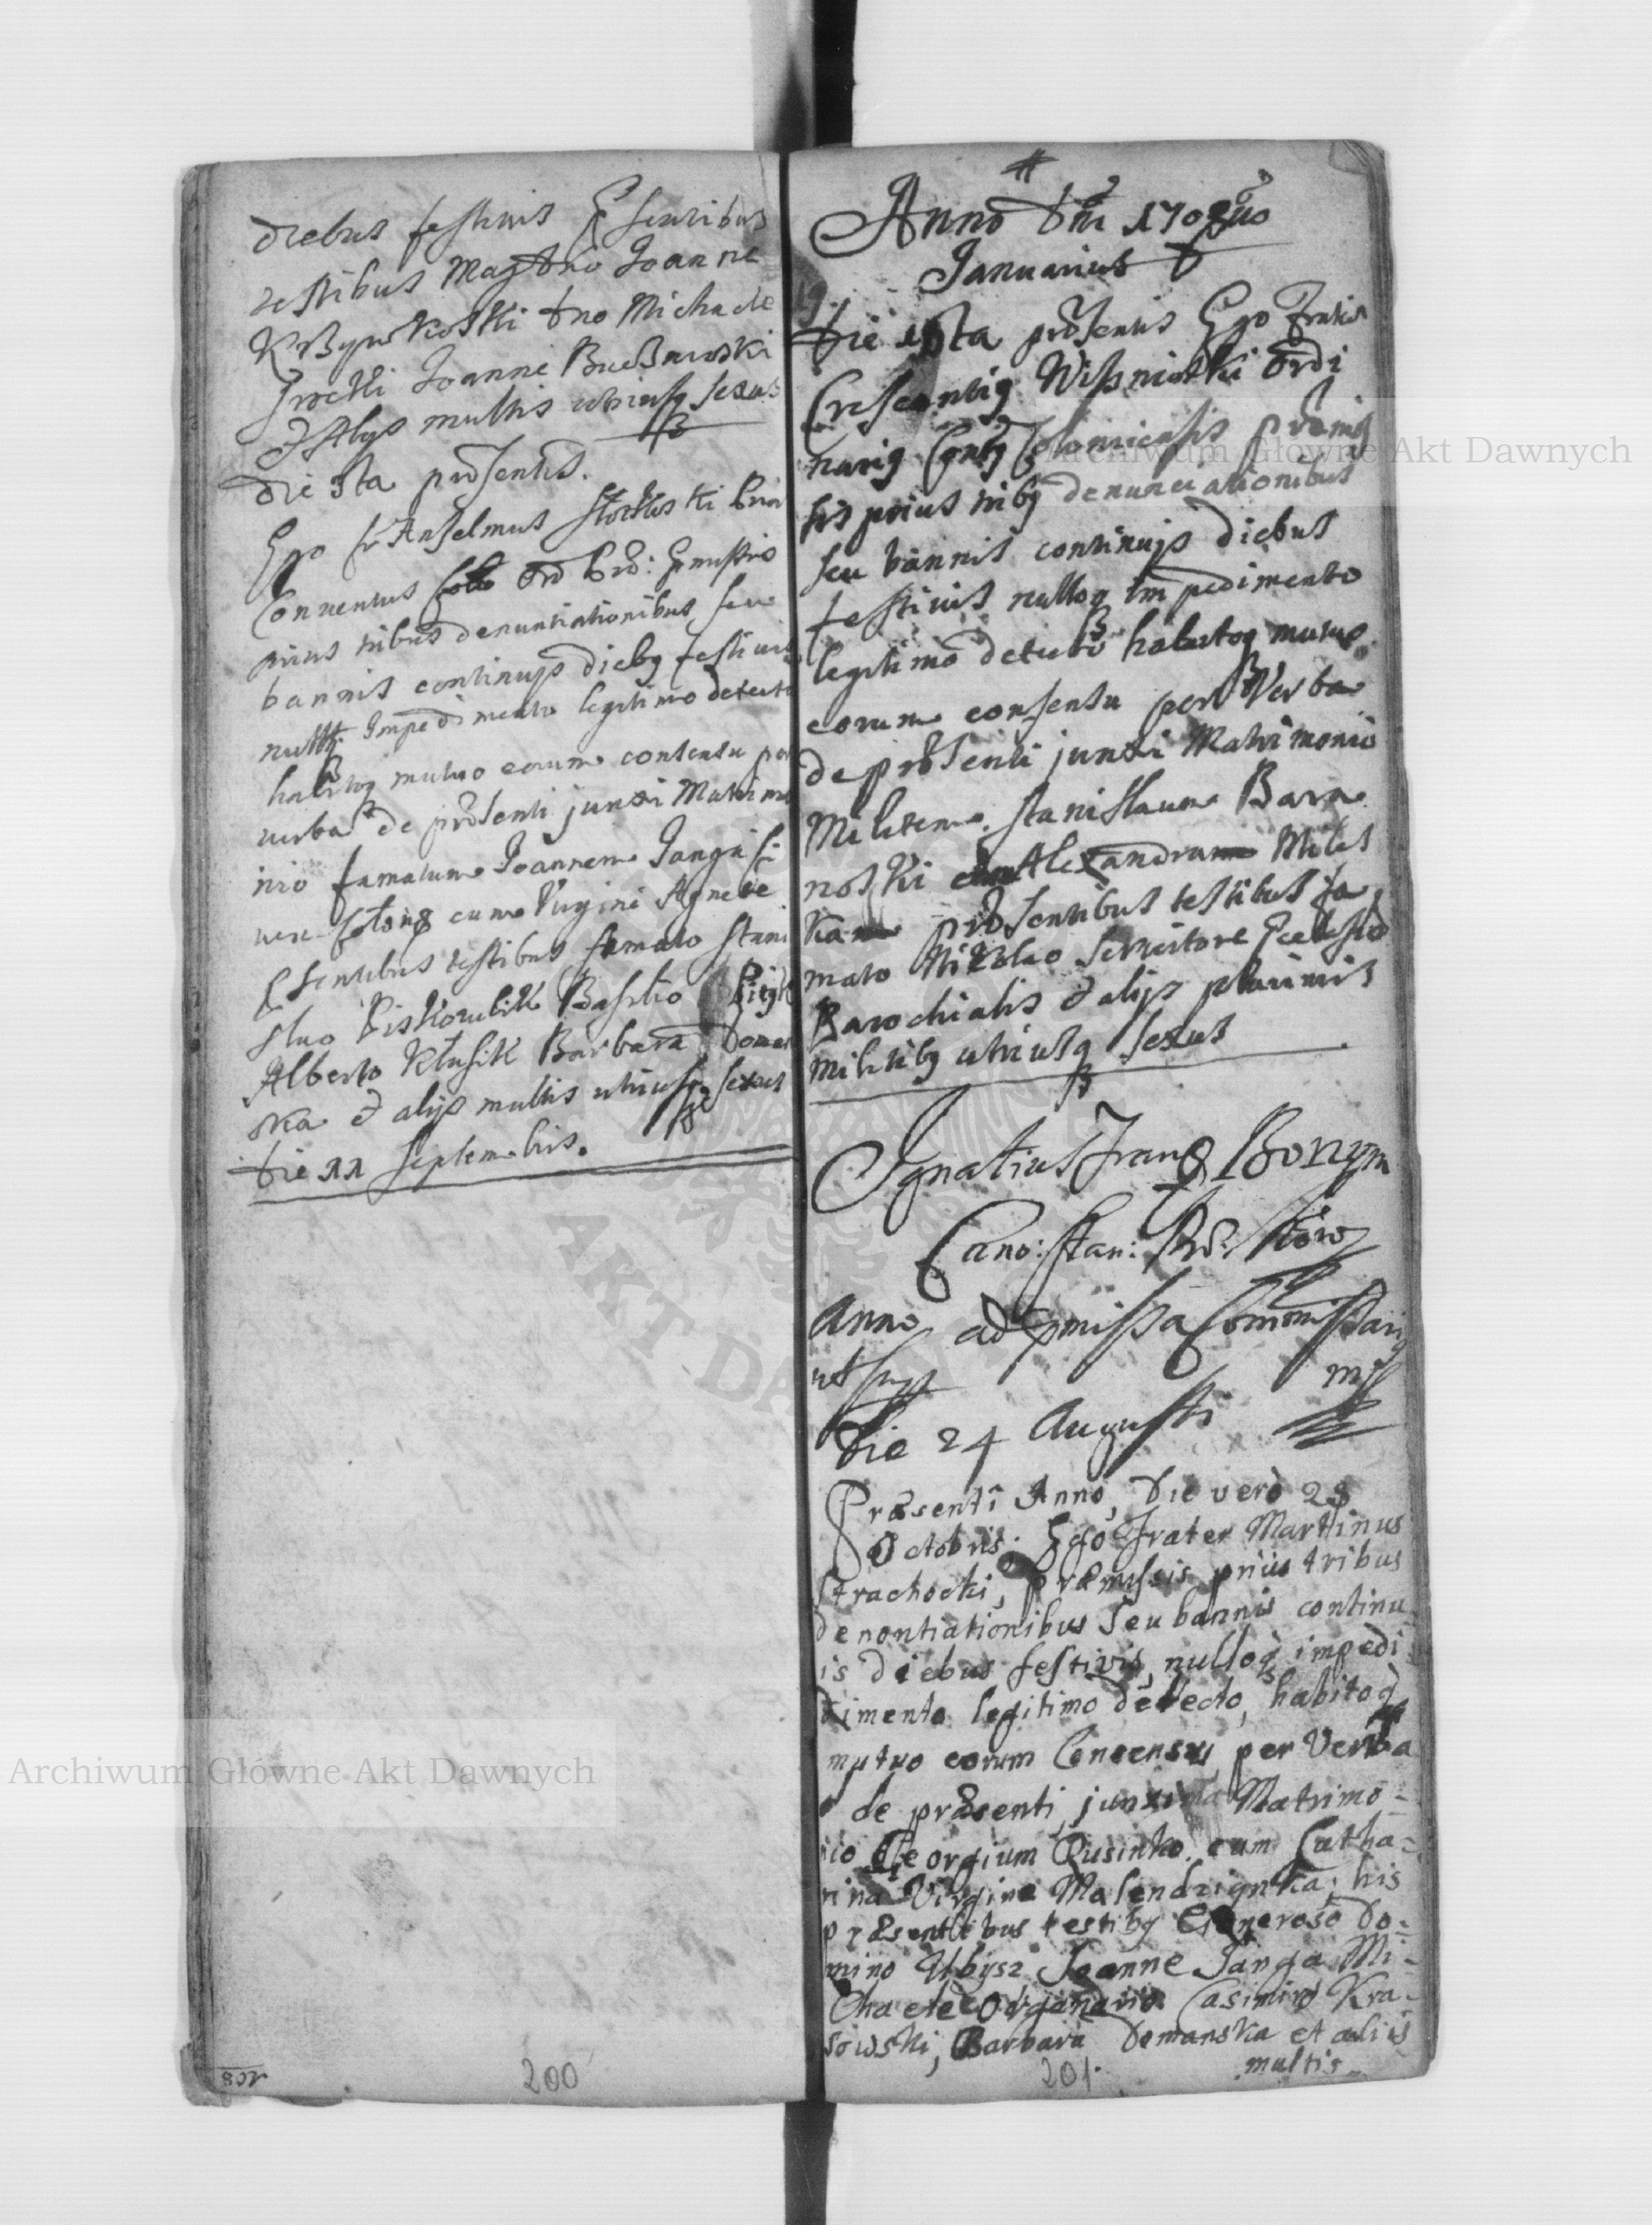 diebus festivis Psentibus
testibus Magdno Joanne
Krzywkoski dno Michaele
Joanne
& Alys multis utriusq sexus
die 3ta prosentis.
Ego fr Anselmus
Conventus Ord Prd: Pmissis
prius tribus denuntiationibus seu
bannis continuis diebq festivis
nulloq Impedimento legitimo detecto
habitoq mutuo eorum consensu per
verba de prosenti junxi Matrimo
nio famatum Joannem Janga
cum Virgine Agnete
Psentibus testibus famato Stani
slao Piskorubik Basilio
Alberto Klusik Barbara Doman
ska & alys multis utriusq sexus
die 11 Septembris.
200
Anno Dni 1708uo
Januarius
19
die ista prosentis Ego Frater
Crescentiq Wisniowski Ordi
nariq Contq Colomiensis promis
sis prius tribq denunciationibus
seu bannis continuis diebus
festivis nulloq impedimento
legitimo detecto habitoq mutuo
eorum consensu per Verba
de prosenti junxi Matrimonio
Militem Stanislaum Bara
noski Alexandram Milet
kam prosentibus testibus fa
mato Nikolao Servitore Ecclesio
Parochialis & alijs plurimis
militibq utriusq sexus
Ignatius Franq Bonzym
Cano: Stan: Prd:
Anno ad pmissa Commissariq
ut supra mp
Die 24 Augusti
Præsenti Anno, Die verò 28
Octobris. Ego Frater Martinus
Strachocki, Præmissis priùs tribus
denontiationibus seu bannis continu
is diebus festivis, nulloq impedi
dimento legitimo detecto, habitoq
mutuo eorum Concensu, per Verba
de præsenti, junxi Matrimo-
nio Georgium Rusinko cum Catha-
rina Virgine Malendzignka, his
præsentibus testibq Generoso Do-
mino Ubysz, Joanne Janga Mi-
chaele Organario Casimiro Kra-
sowski, Barbara Domanska et aliis
multis
201.
Archiwum Główne Akt Dawnych
Archiwum Główne Akt Dawnych
AKT DAWNYCH